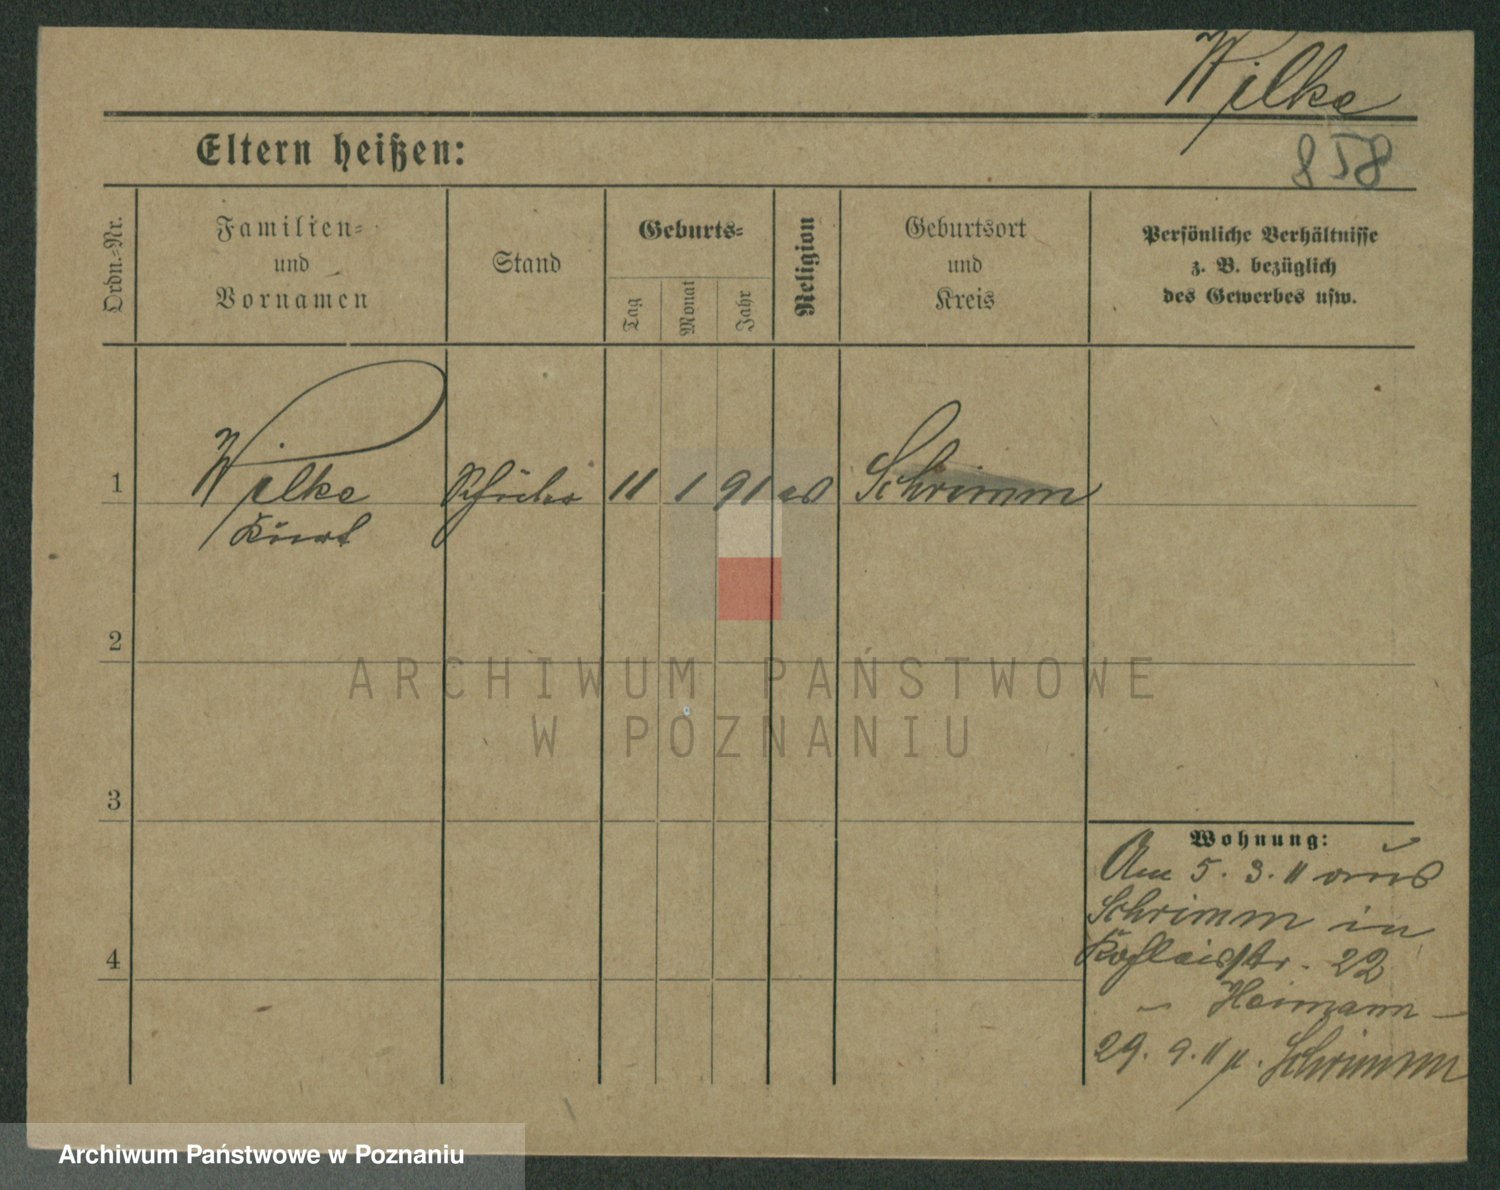 Wilke
858
Eltern heißen:
Ordn.-Nr.
Familien-
und
Vornamen
Stand
Geburts-
Tag
Monat
Jahr
Religion
Geburtsort
und
Kreis
Persönliche Verhältnisse
z. B. bezüglich
des Gewerbes usw.
1
Wilke
Kurt
11
1
91
Schrimm
2
3
4
Wohnung:
Am 5. 3. 11 aus
Schrimm in
22
- Heimann -
29. 9. 11 n. Schrimm
ARCHIWUM PAŃSTWOWE
W POZNANIU
Archiwum Państwowe w Poznaniu